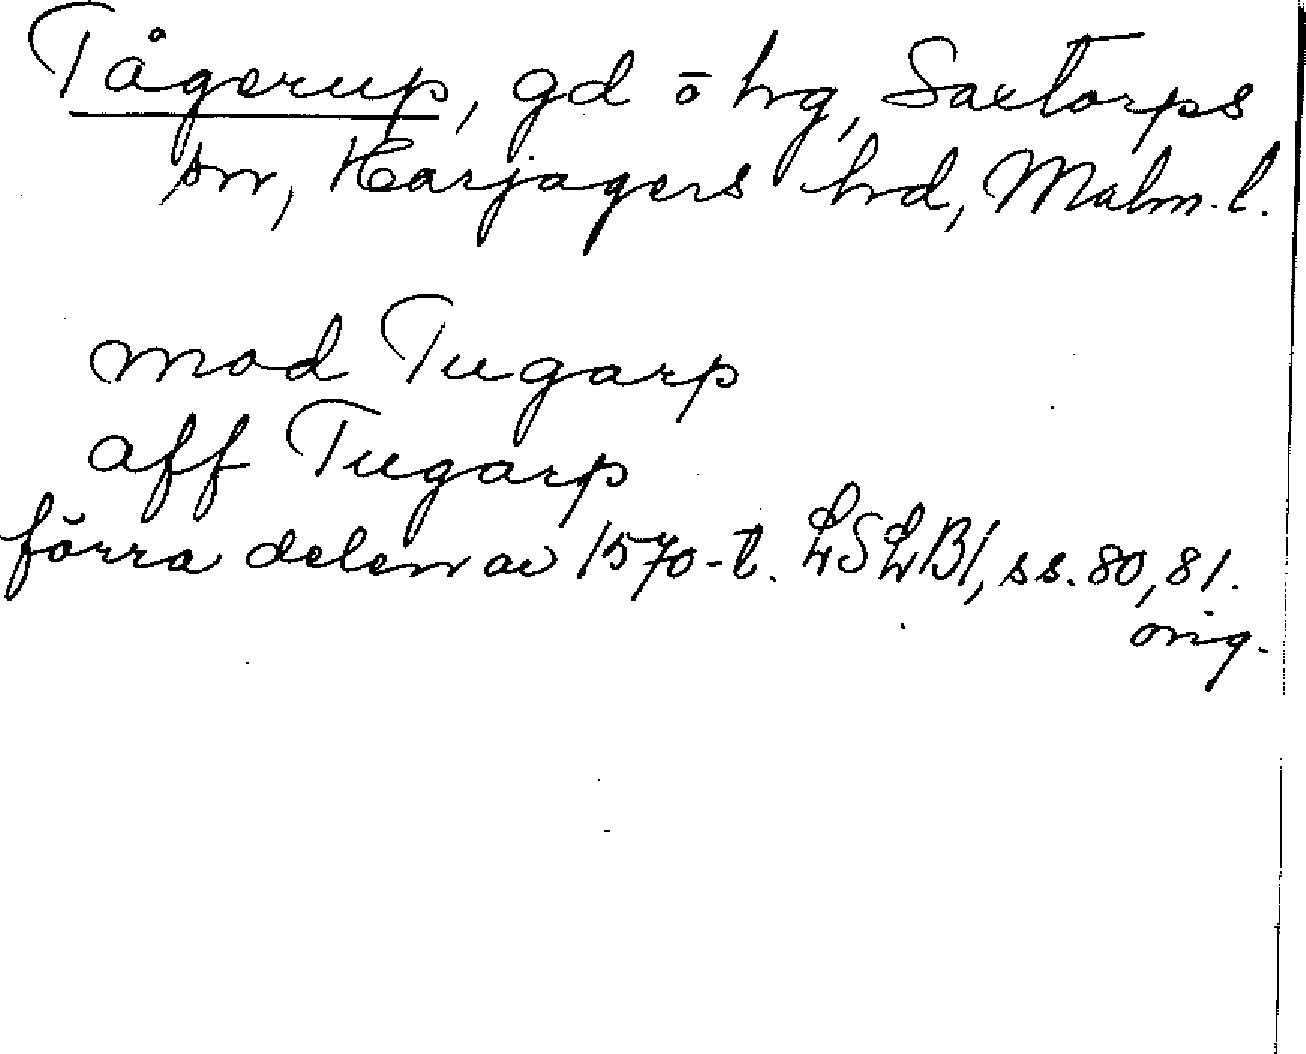 Tågerup, gd o hg, Saxtorps
sn, Harjagers hd, Malm. l.
mod Tugarp
aff Tugarp
förra delen av 1570-t. LSLB1, ss. 80, 81.
orig.